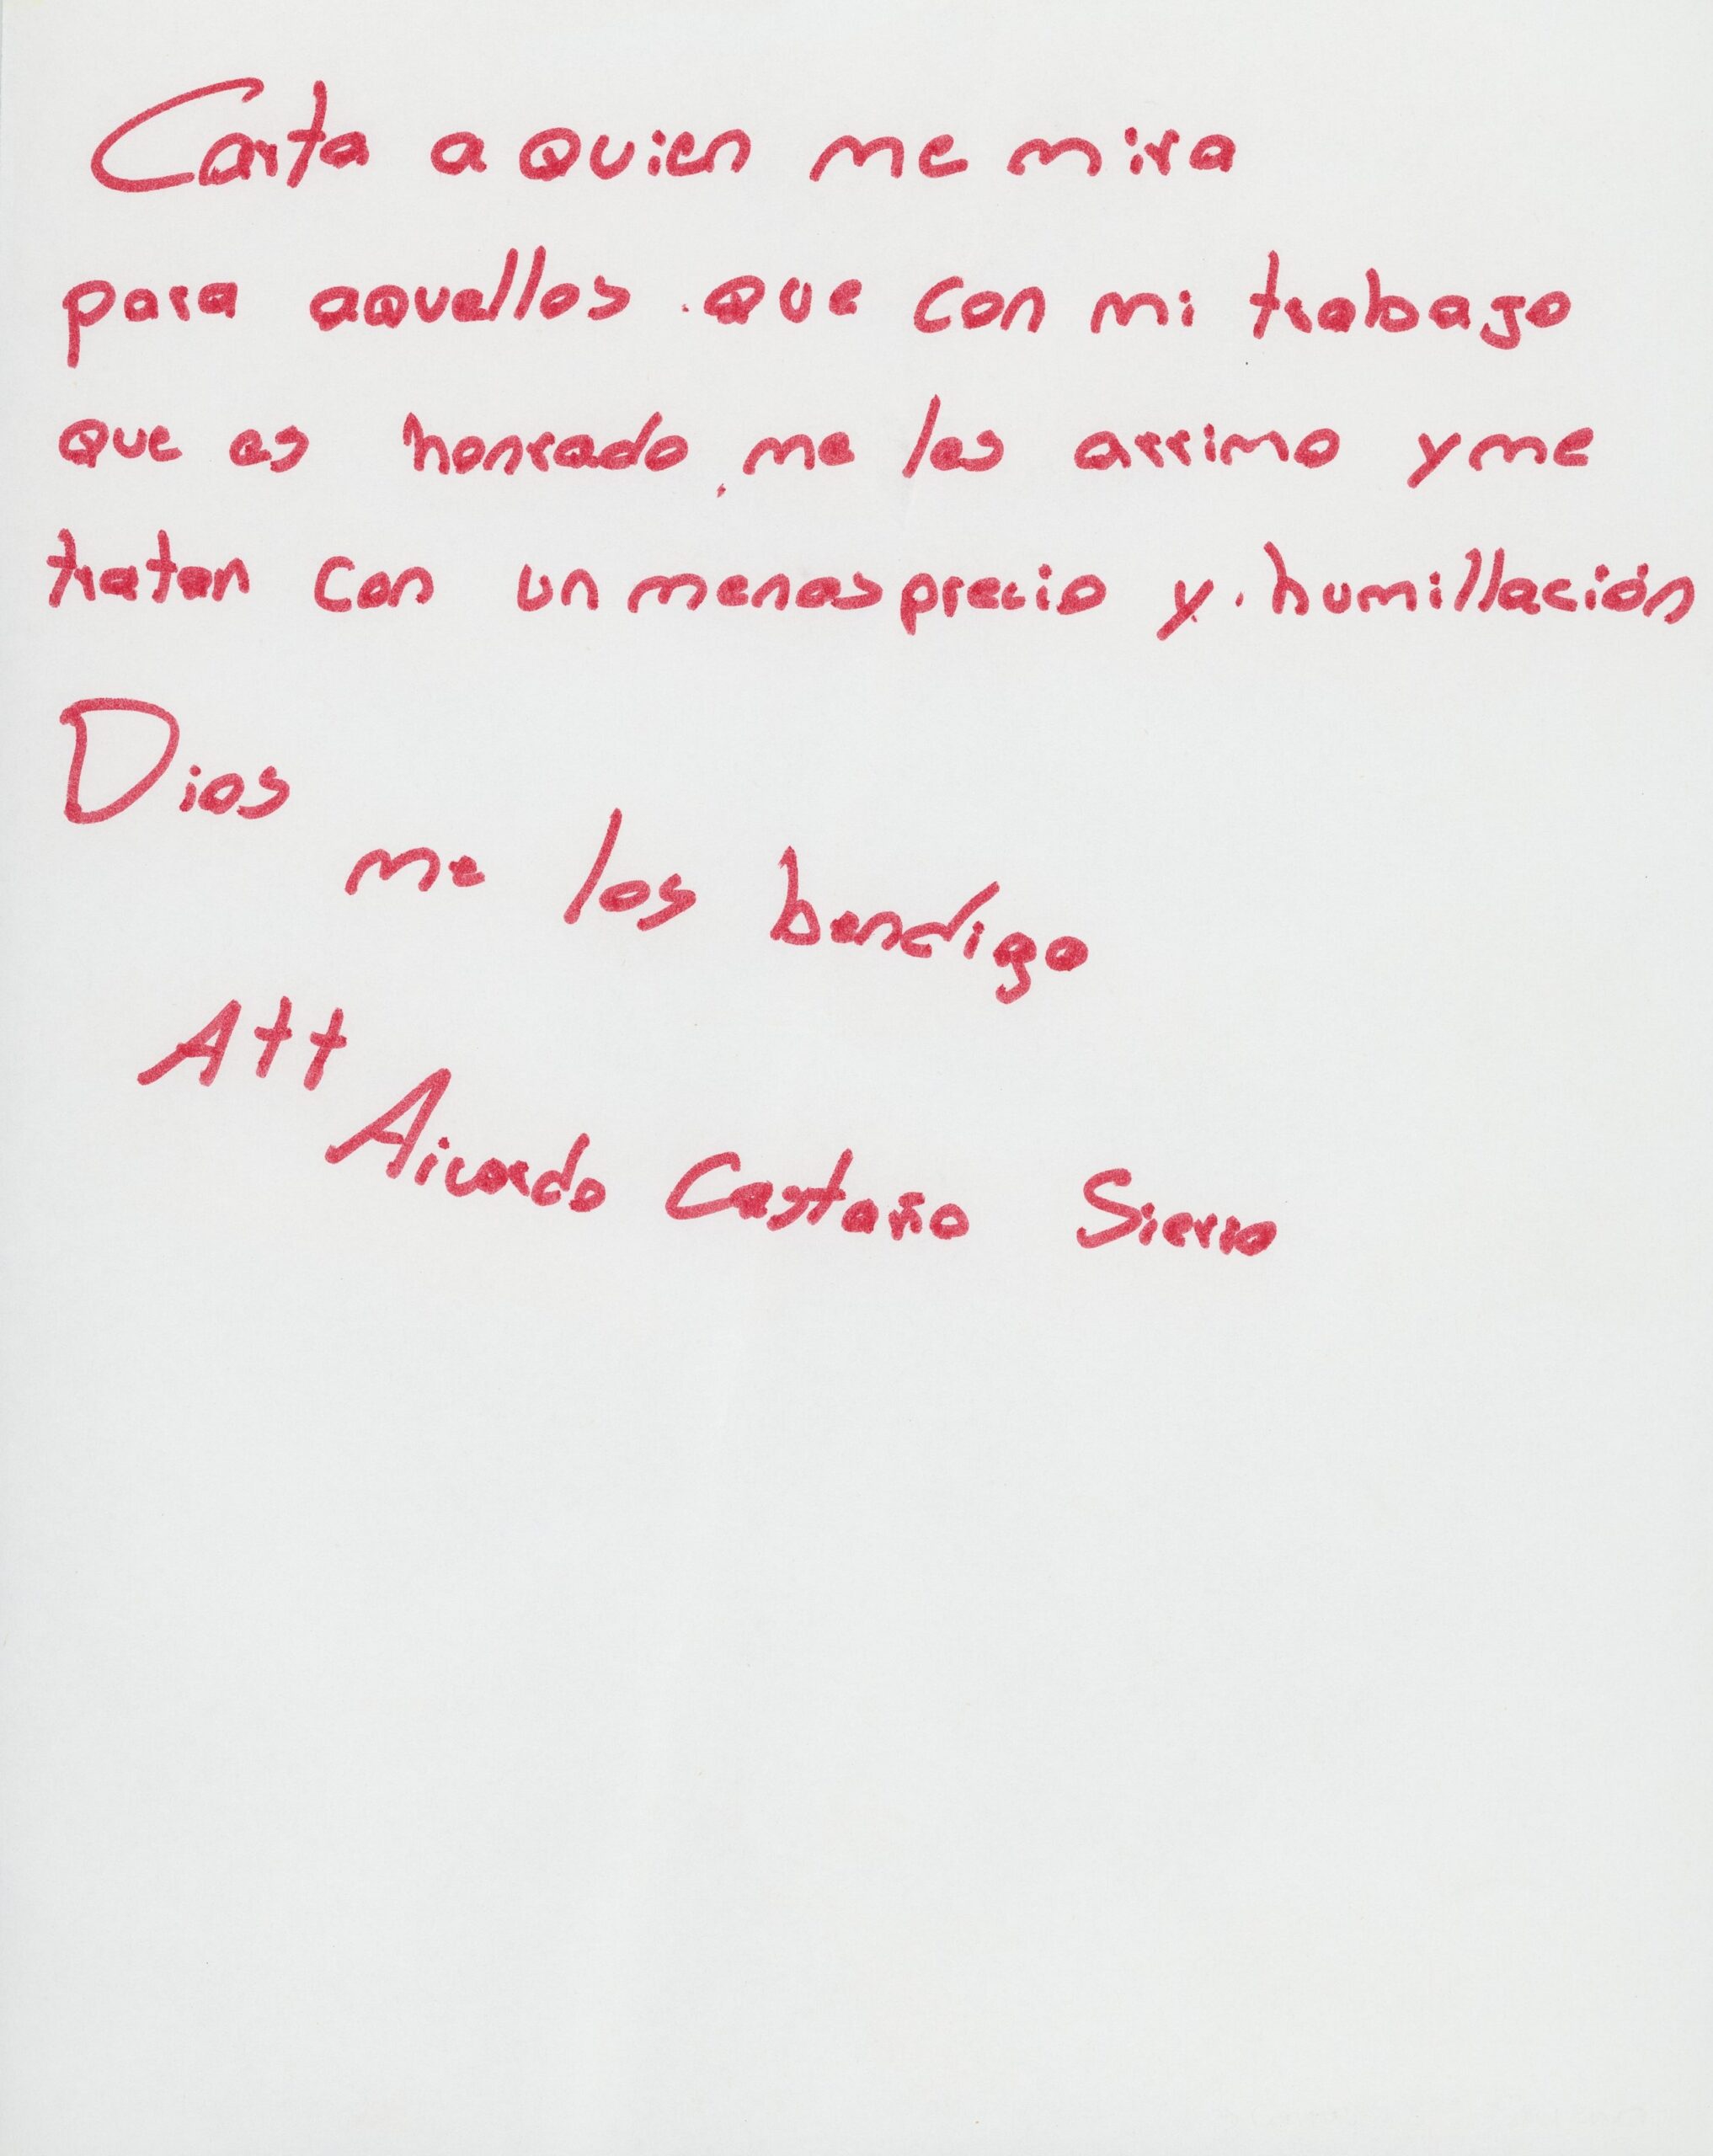 Carta a quien me mira
para aquellos que con mi trabago
que es honrado me les arrimo y me
tratan con un menosprecio y humillación
Dios
me los bendigo
Att
Aicardo Castaño Sierra